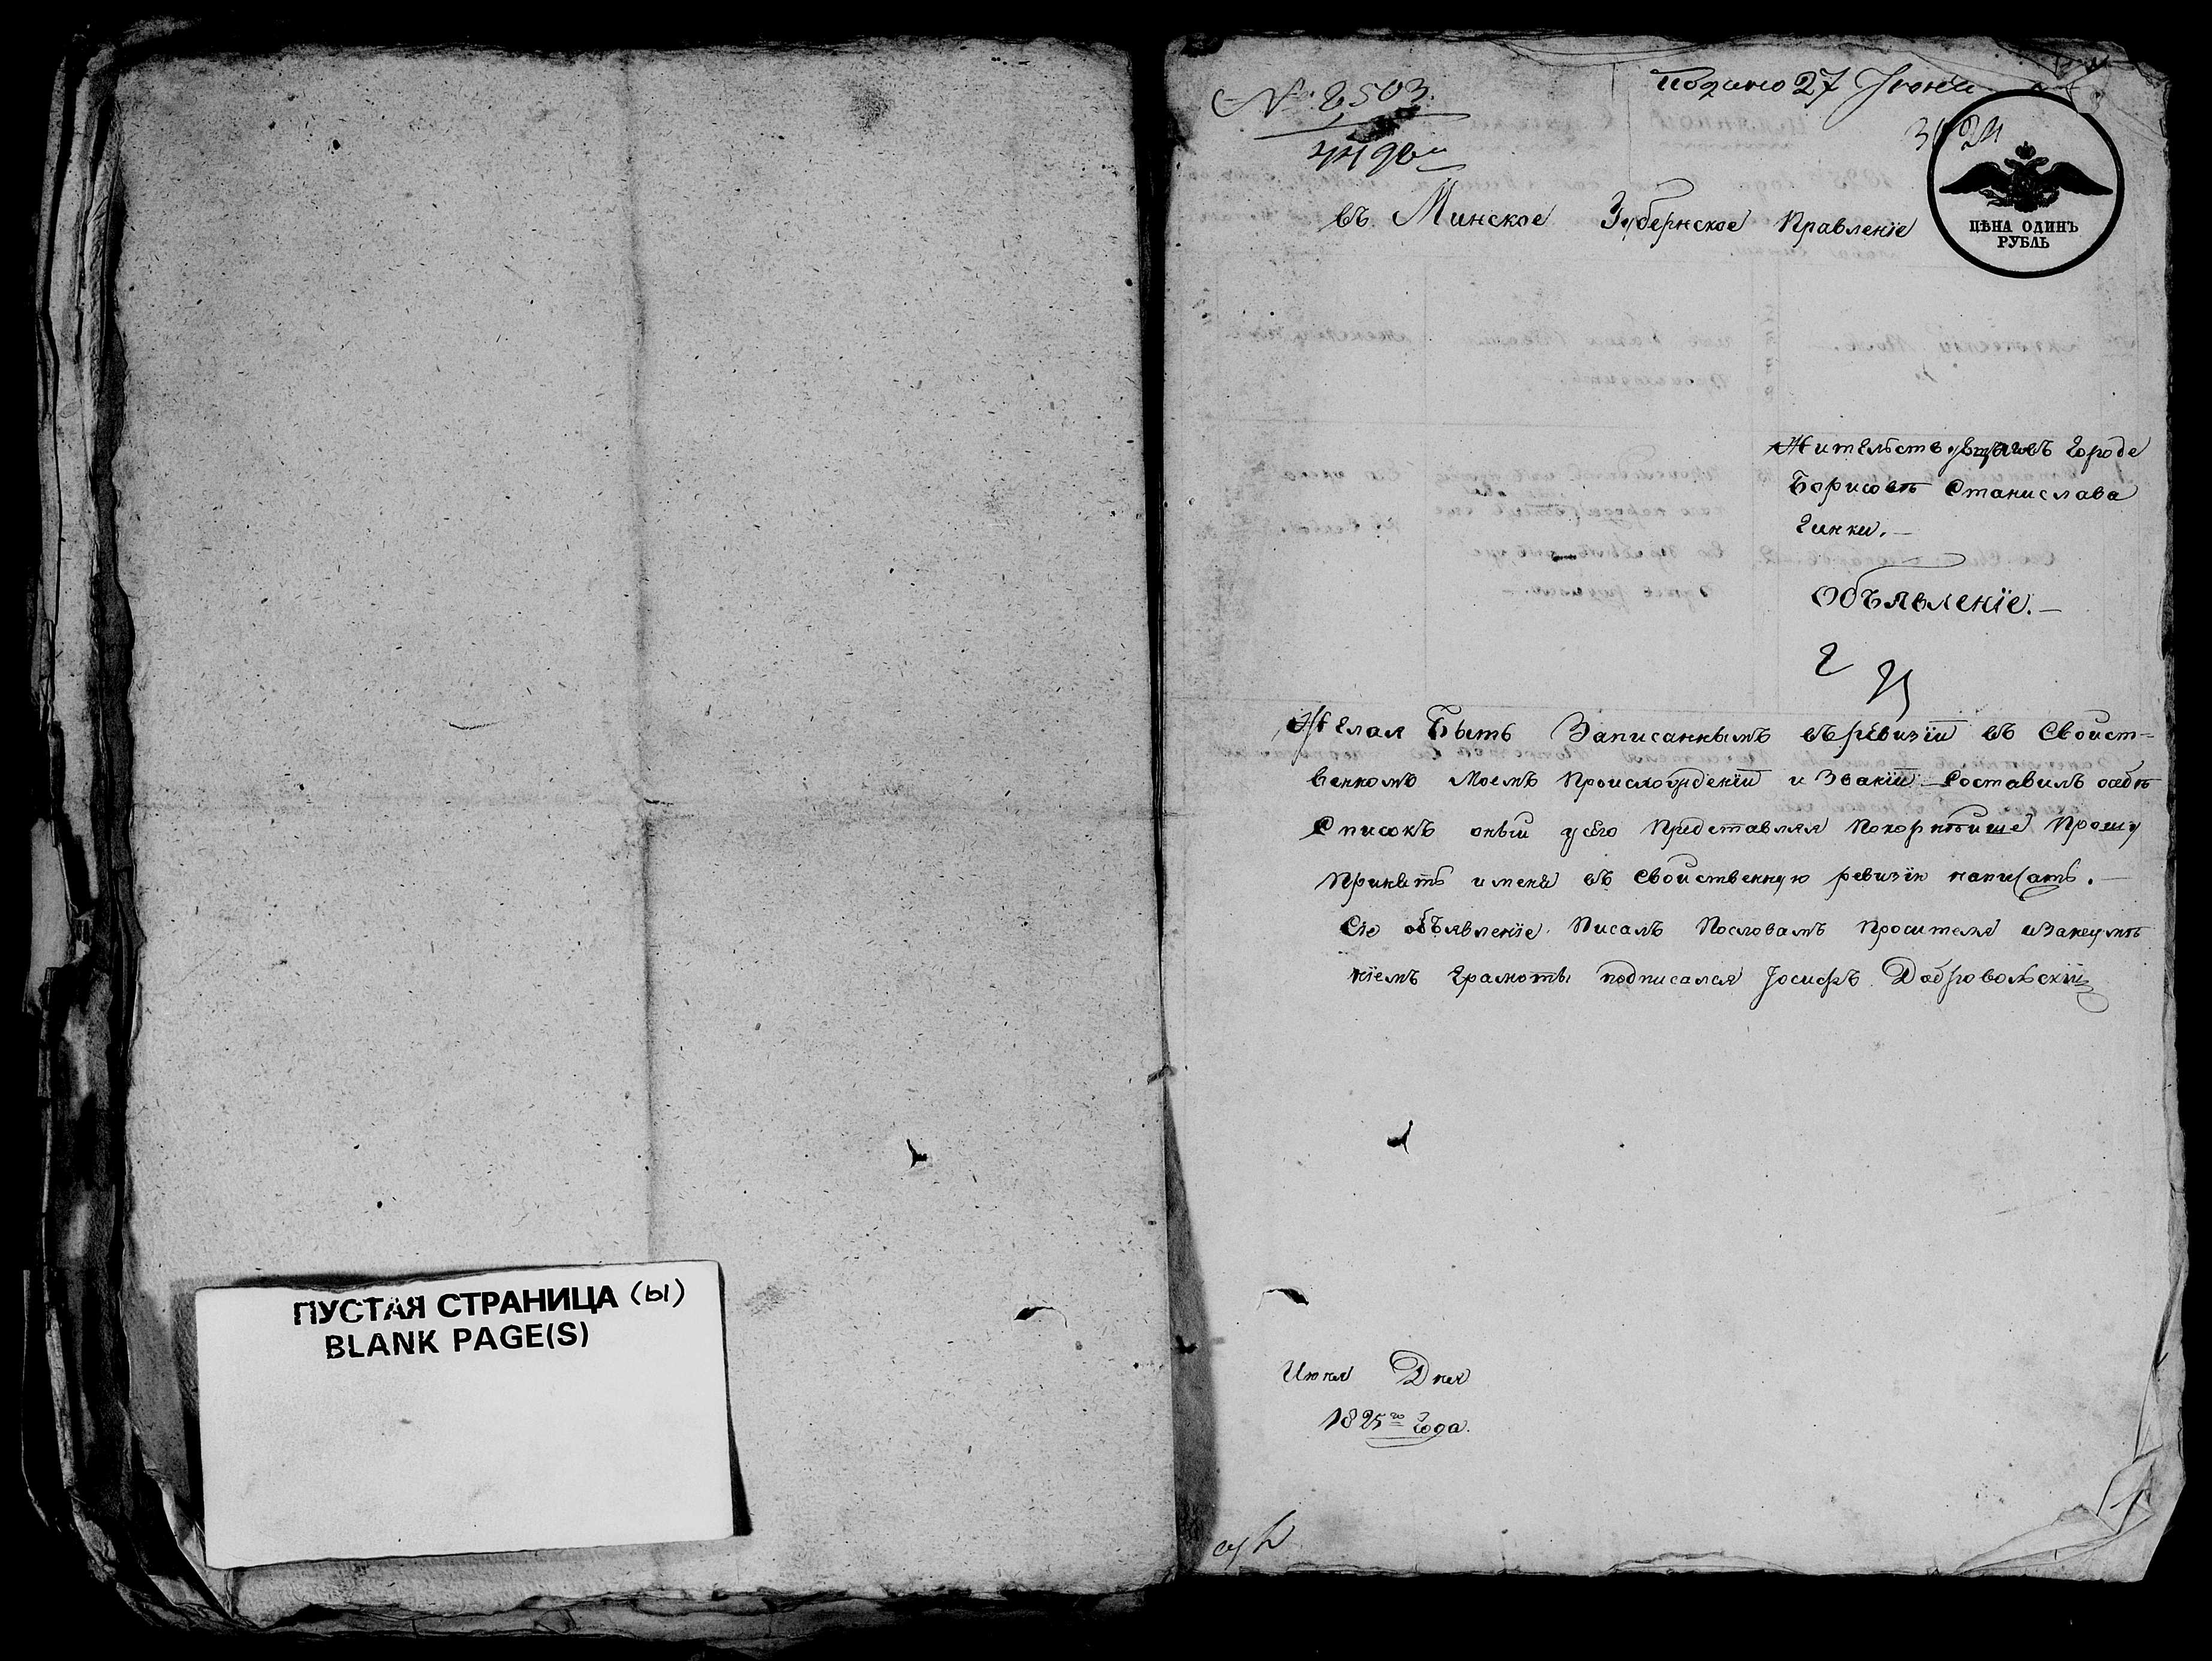 ПУСТАЯ СТРАНИЦА (ы)
BLANK PAGE(S)
№ 2503.
Подано 27 Июня
ЦѢНА ОДИНЪ
РУБЛЬ
въ Минское Губернское Правленїе
въ Городе
Борисовѣ Станислава
Гинки.—
Объявленїе.—
Желая Быть Записаннымъ въ ревизїи въ Свойст-
венномъ Моемъ Происхожденїи и Званїи Составилъ особѣ
Списокъ оный у сего Представляя Покорнѣйше Прошу
Принять и меня въ Свойственную ревизїю написать.—
Сїе объявленїе Писалъ Пословамъ Просителя иЗанеумѣ
нїемъ Грамоты подписался Іосифъ Добровольскїй
Июня Дня
1825го Года.